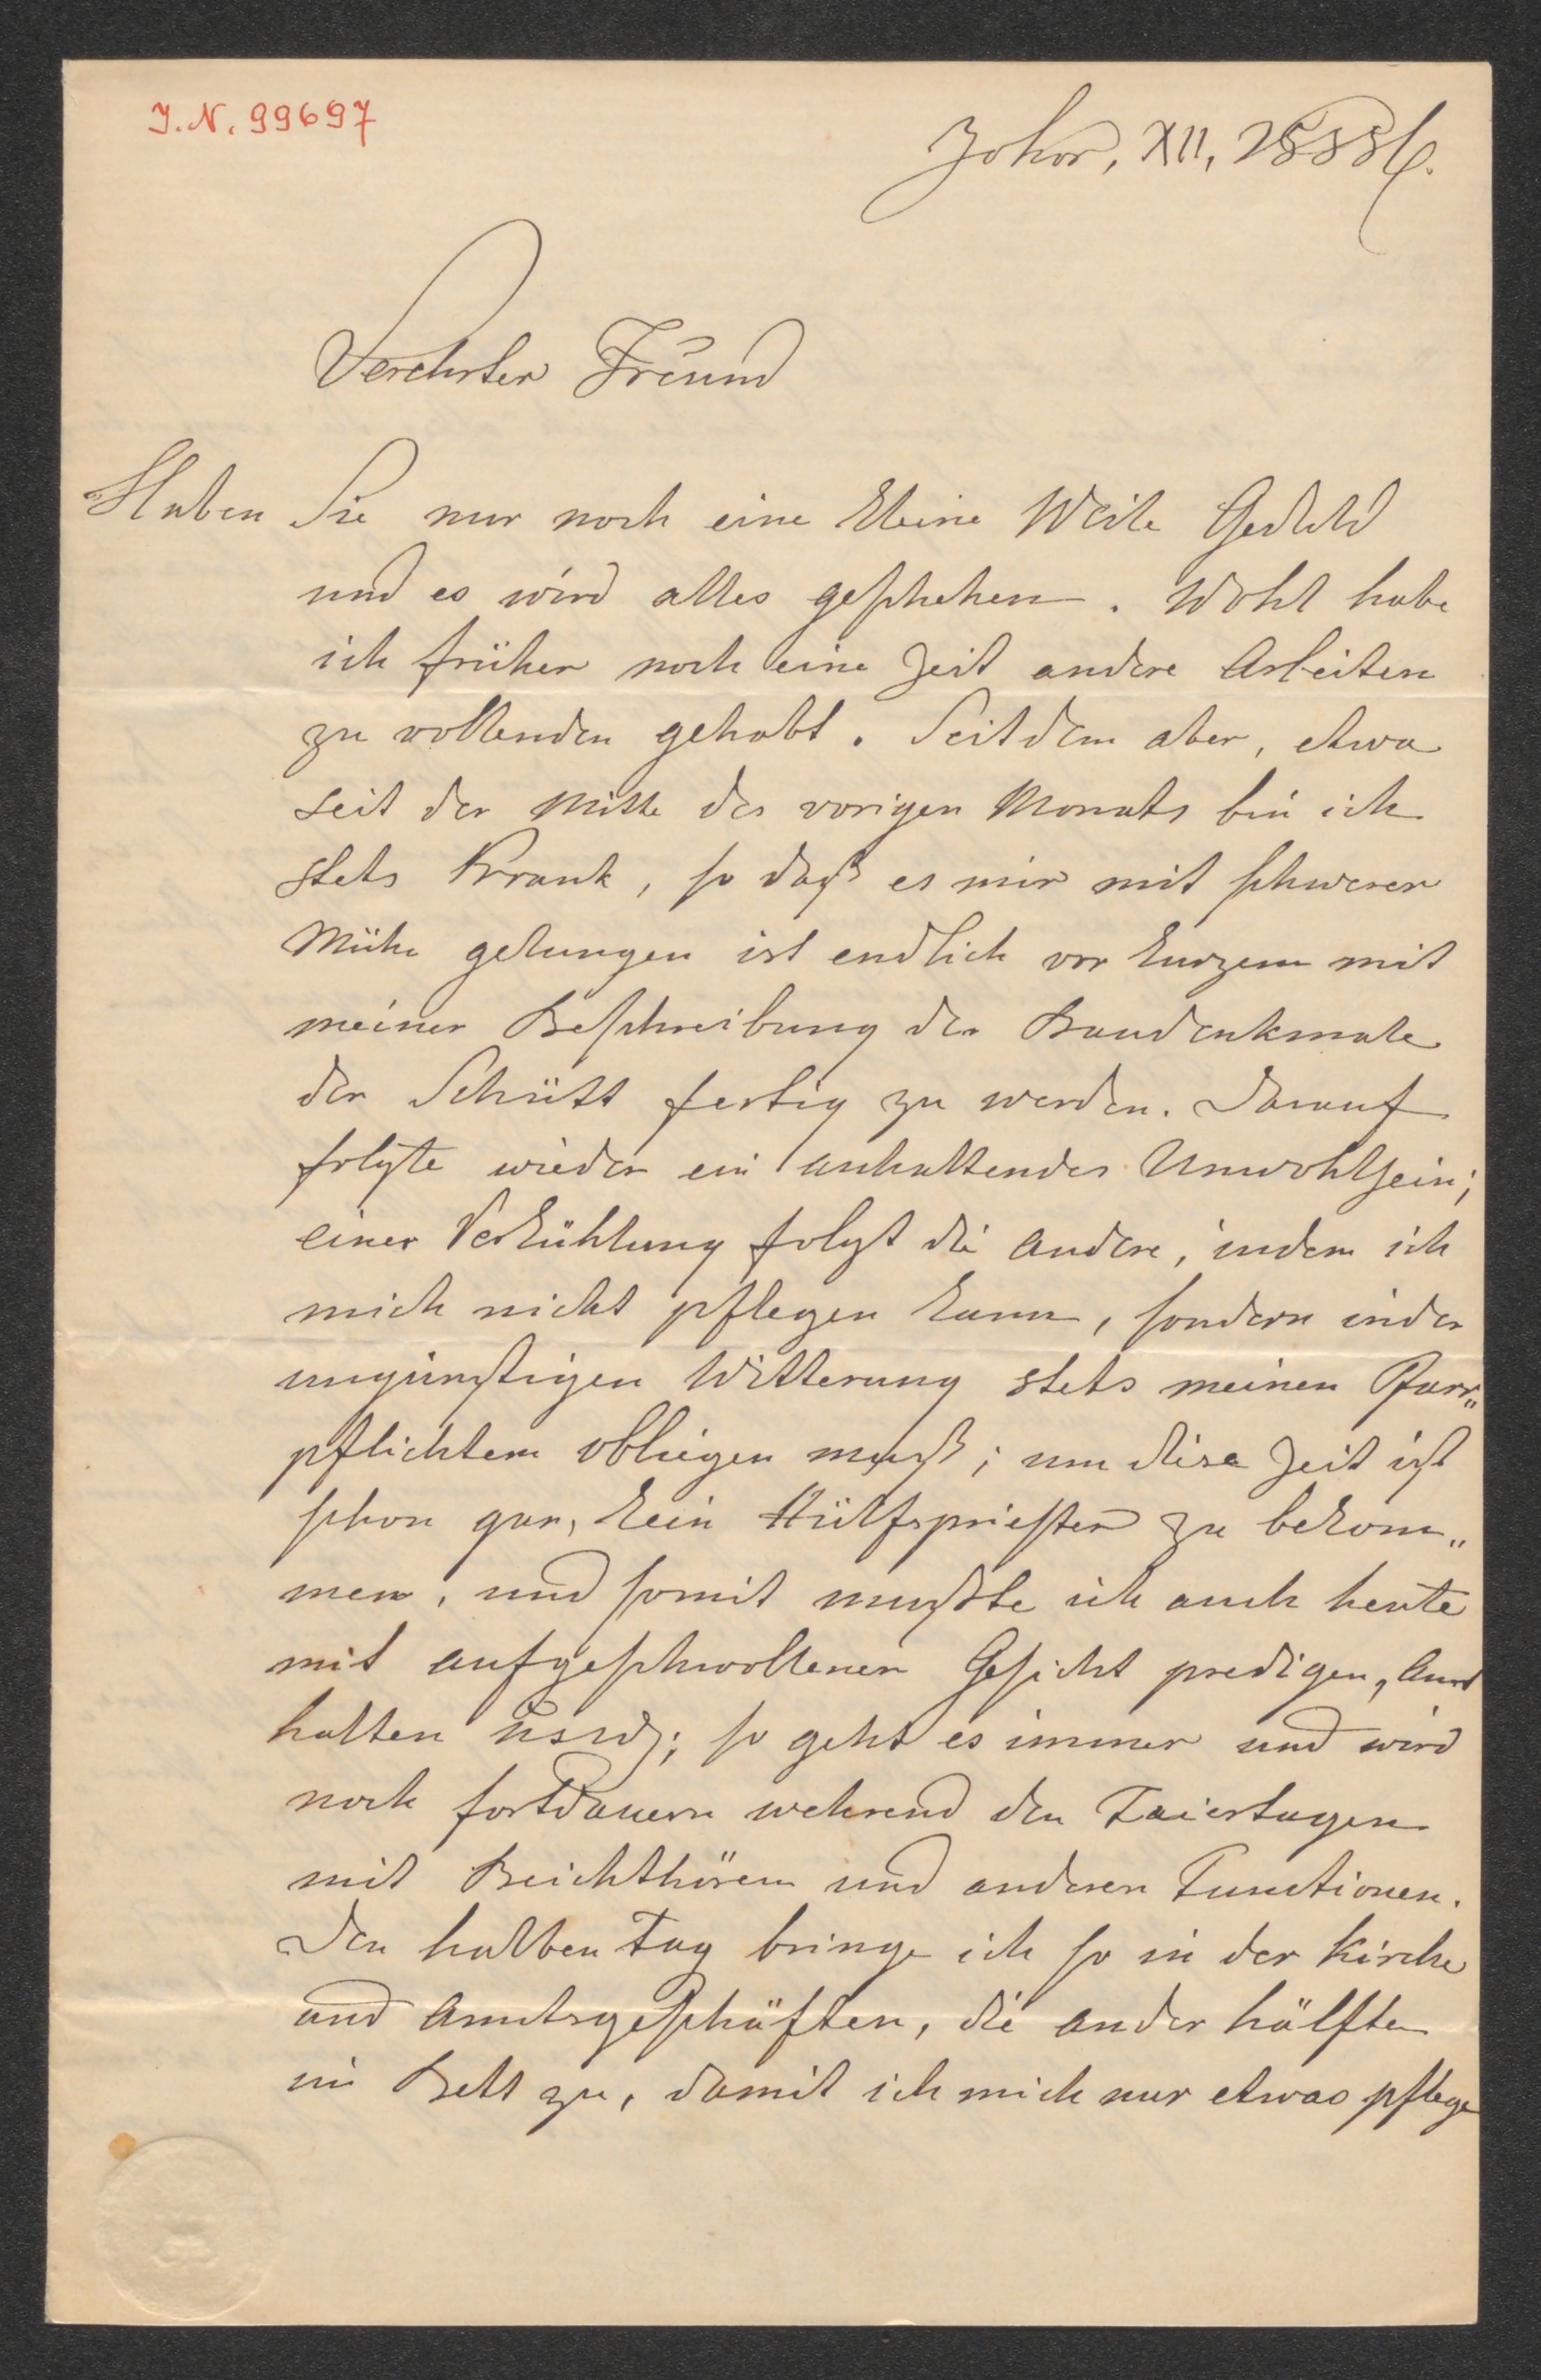 J. N. 99697
Zohor, XII,
Verehrter Freund
Haben Sie nur noch eine kleine Weile Geduld
und es wird alles geschehen. Wohl habe
ich früher noch eine Zeit andere Arbeiten
zu vollenden gehabt. Seitdem aber, etwa
seit der Mitte des vorigen Monats bin ich
stets krank, so daß es mir mit schwerer
Mühe gelungen ist endlich vor kurzem mit
meiner Beschreibung der Baudenkmale
der Schütt fertig zu werden. Darauf
folgte wieder ein anhaltendes Unwohlsein;
einer Verkühlung folgt die andere, indem ich
mich nicht pflegen kann, sondern in der
ungünstigen Witterung stets meinen Pfarr„
pflichten obliegen muß; um diese Zeit ist
schon gar, kein Hülfspriester zu bekom„
men, und somit mußte ich auch heute
mit aufgeschwollenen Gesicht predigen, Amt
halten usw; so geht es immer und wird
noch fortdauern wehrend den Faiertagen
mit Beichthören und anderen Functionen.
Den halben Tag bringe ich so in der Kirche
und Amtsgeschäften, die ander hälfte
im Bett zu, damit ich mich nur etwas pflege